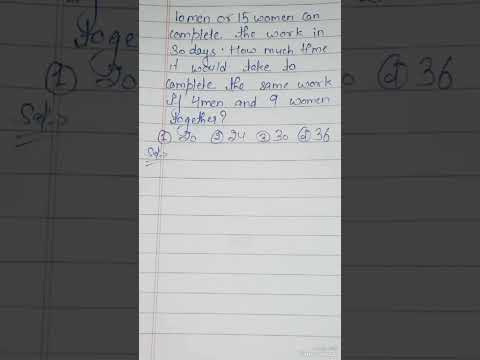 10men or 15 women can
complete the work in
30 days. How much time
it would take to
complete the same work
If 4men and 9 women
together?
① 20 ② 24 ③ 30 ④ 36
Sol:→